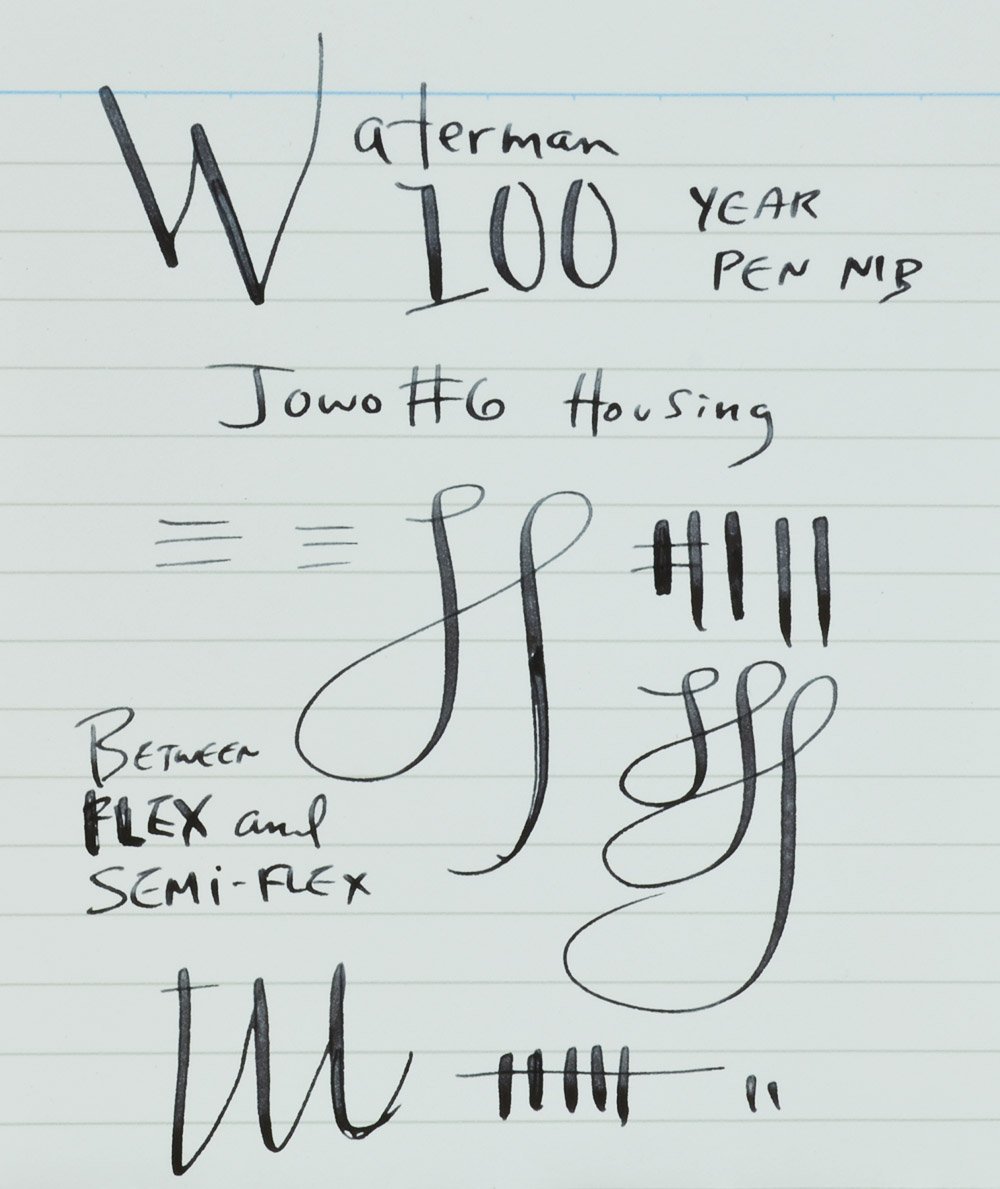 Waterman
100 YEAR
PEN NIB
Jowo #6 Housing
BETWEEN
FLEX and
SEMi-FLEX